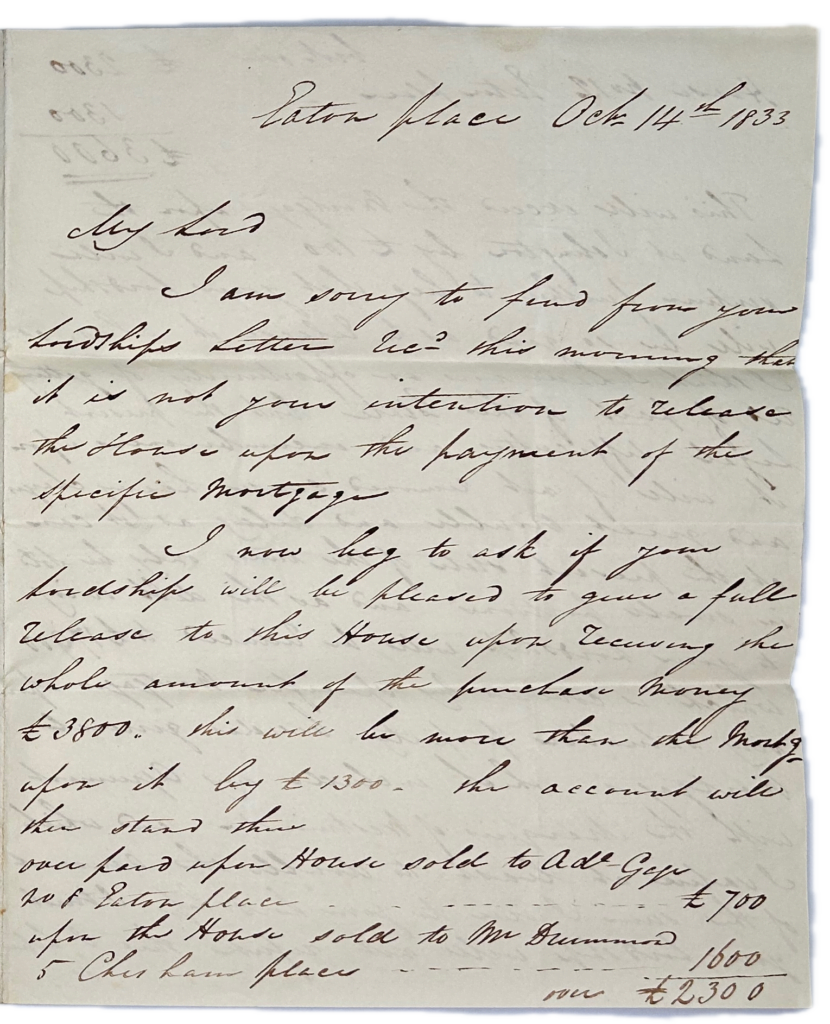 Eaton place Oct 14th 1833
My Lord
I am sorry to find from your
Lordships Letter Recd this morning that
it is not your intention to release
the House upon the payment of the
specific Mortgage
I now beg to ask if your
Lordship will be pleased to give a full
release to this House upon receiving the
whole amount of the purchase Money
£3800. this will be more than the Mortg
upon it by £1300 - the account will
then stand thus
over paid upon House sold to Adl Gage
no 8 Eaton place - - - - - - - - - £700
upon the House sold to Mr Drummond
5 Chesham place - - - - - - - - 1600
over £2300